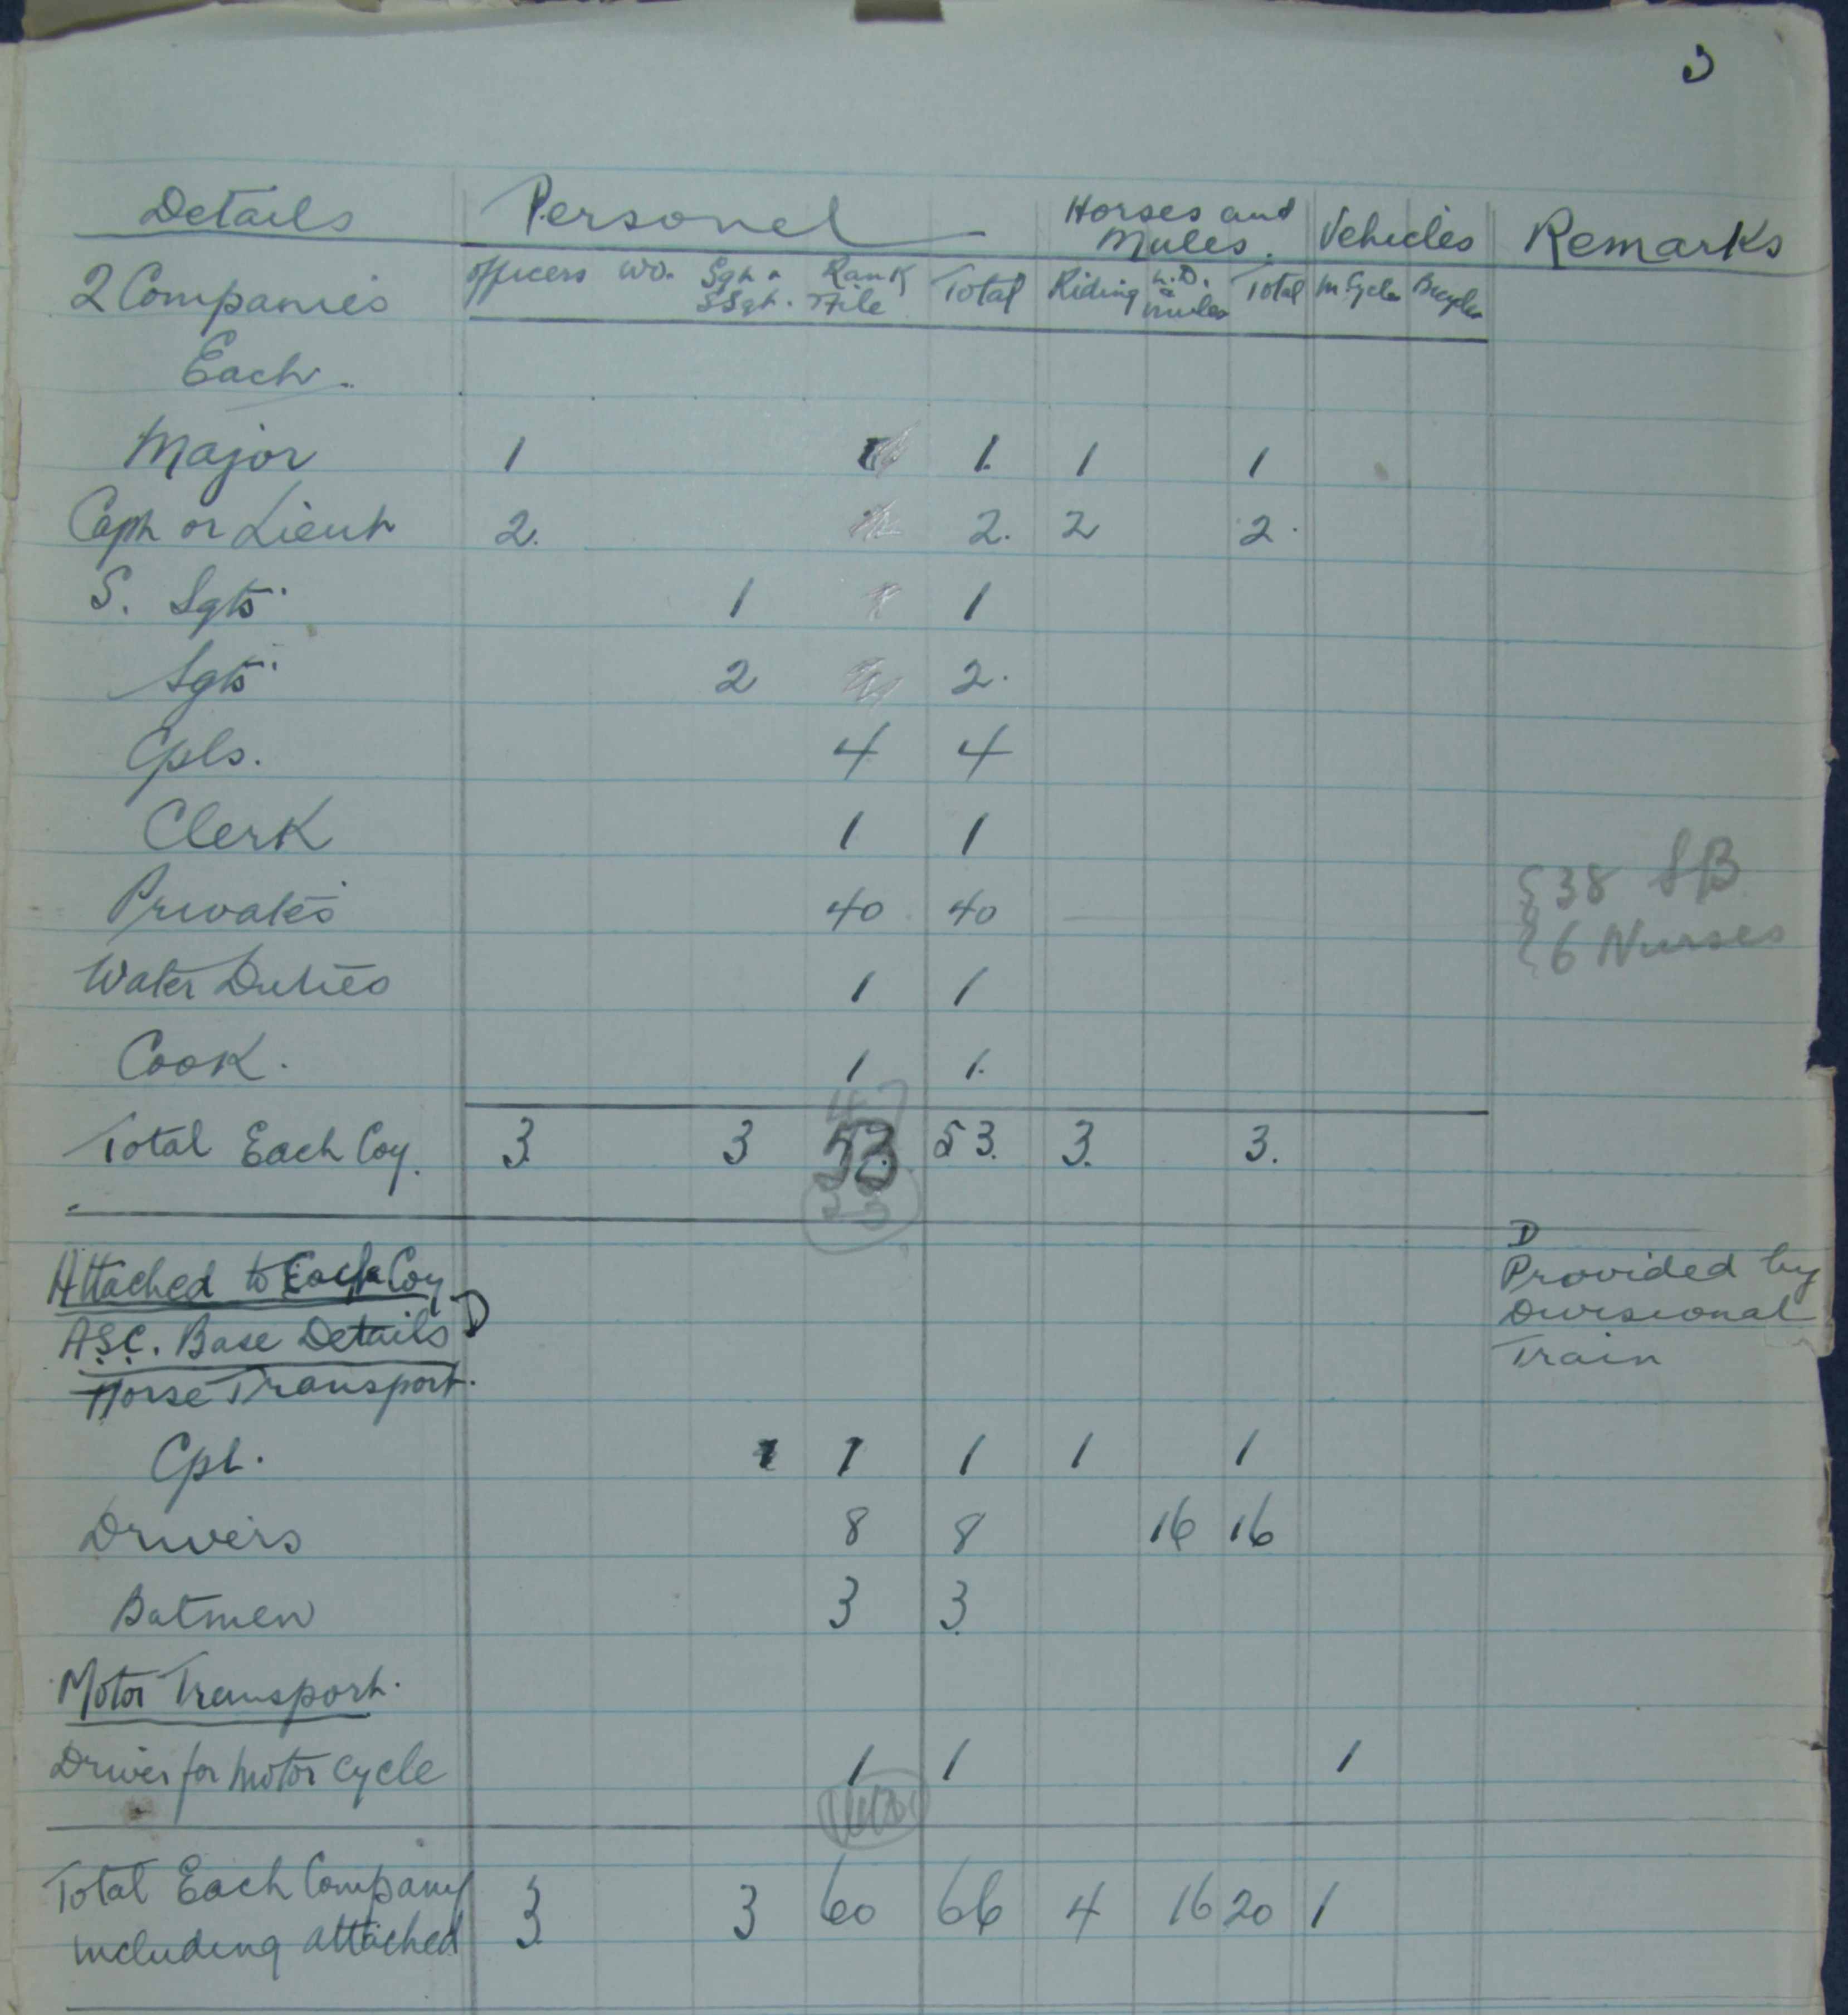 3
Details Personel Horses and Mules. Vehicles Remarks
2 Companies Officers WO. Sgt & SSgt. Rank File Total Riding L.D. & mules Total M. Cycles Bicycles
Each.
Major 1 1. 1 1
Capt or Lieut 2. 2. 2 2.
S. Sgts 1 1
Sgts 2 2.
Cpls. 4 4
Clerk 1 1
Privates 40 40 { 38 SB
{ 6 Nurses
Water Duties 1 1
Cook. 1 1.
Total Each Coy. 3. 3 47 53. 3. 3.
Attached to Each Coy
A.S.C. Base Details D
Horse Transport.
D
Provided by
Divisional
Train
Cpl. 1 1 1 1 1
Drivers 8 8 16 16
Batmen 3 3.
Motor Transport.
Driver for Motor Cycle 1 1 1
Total Each Company
including attached 3. 3 60 66 4 16 20 1